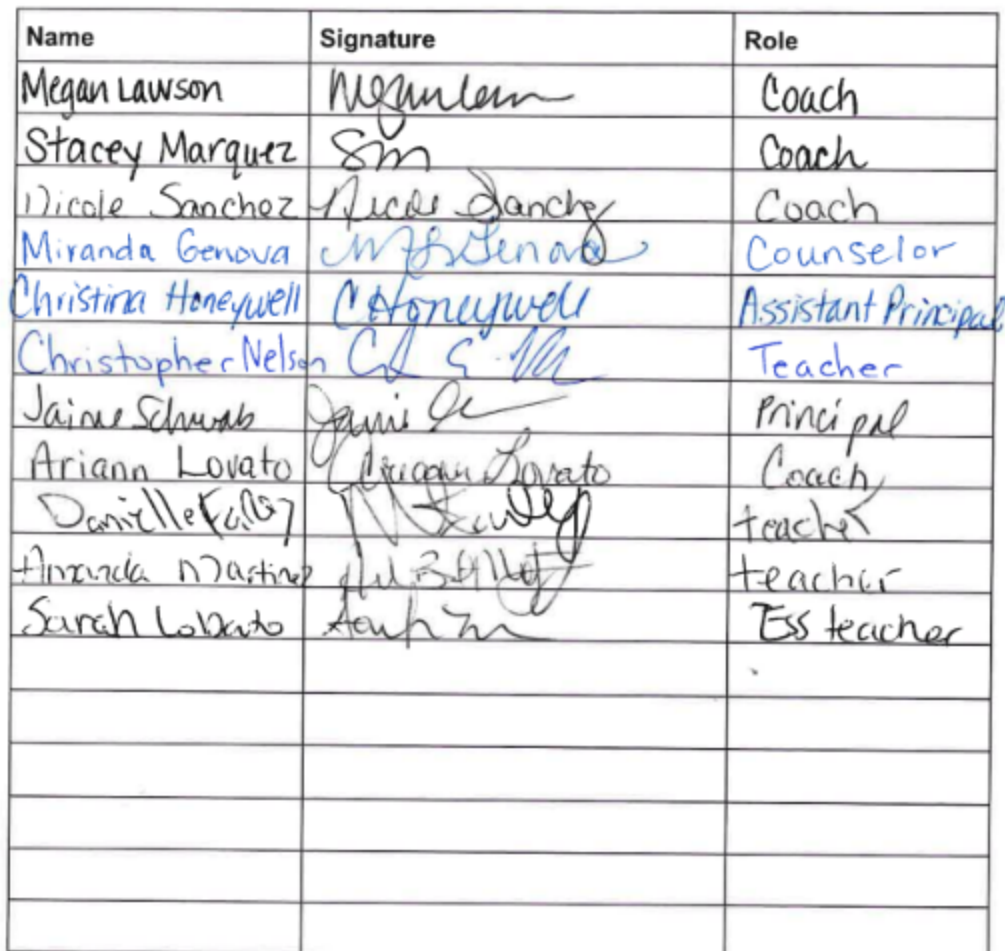 Name Signature Role
Megan Lawson Coach
Stacey Marquez Sm Coach
Nicole Sanchez Nicole Sanchez Coach
Miranda Genova Genova Counselor
Christina Honeywell C Honeywell Assistant Principal
Christopher Nelson Teacher
Jaime Schwab Principal
Ariann Lovato Ariann Lovato Coach
Danielle teacher
Amanda Martinez teacher
Sarah Lobato Ess teacher